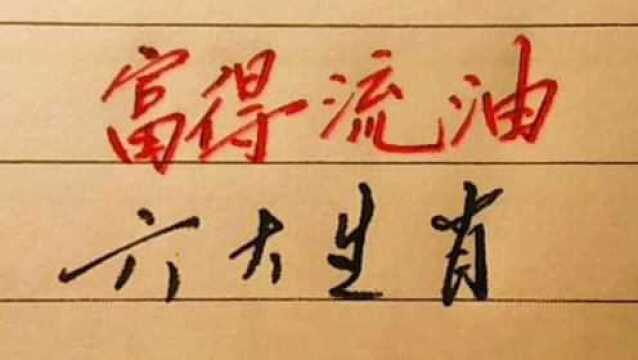 富得流油
六大生肖